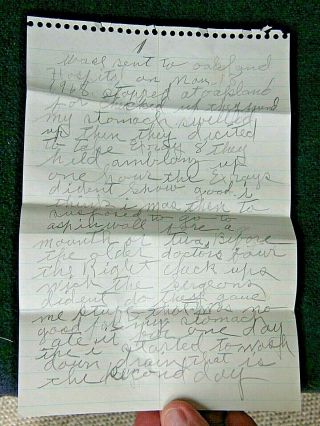 1
Was sent to oakland
Hospital on Nov 10
1960 stopped at oakland
for checked up they found
my stomach swelled
up then they dicited
to take Exrays & they
held amblany up
one hour the Exrays
dident show good i
think i was then to
supposed to go to
aspinwall here a
mounth or two Before
the older doctors
the Right check ups
with the surgeons
dident do they gave
me stuff that was no
good for my stomach
ate it but one day
the i started to wash
down drain that is
the second day